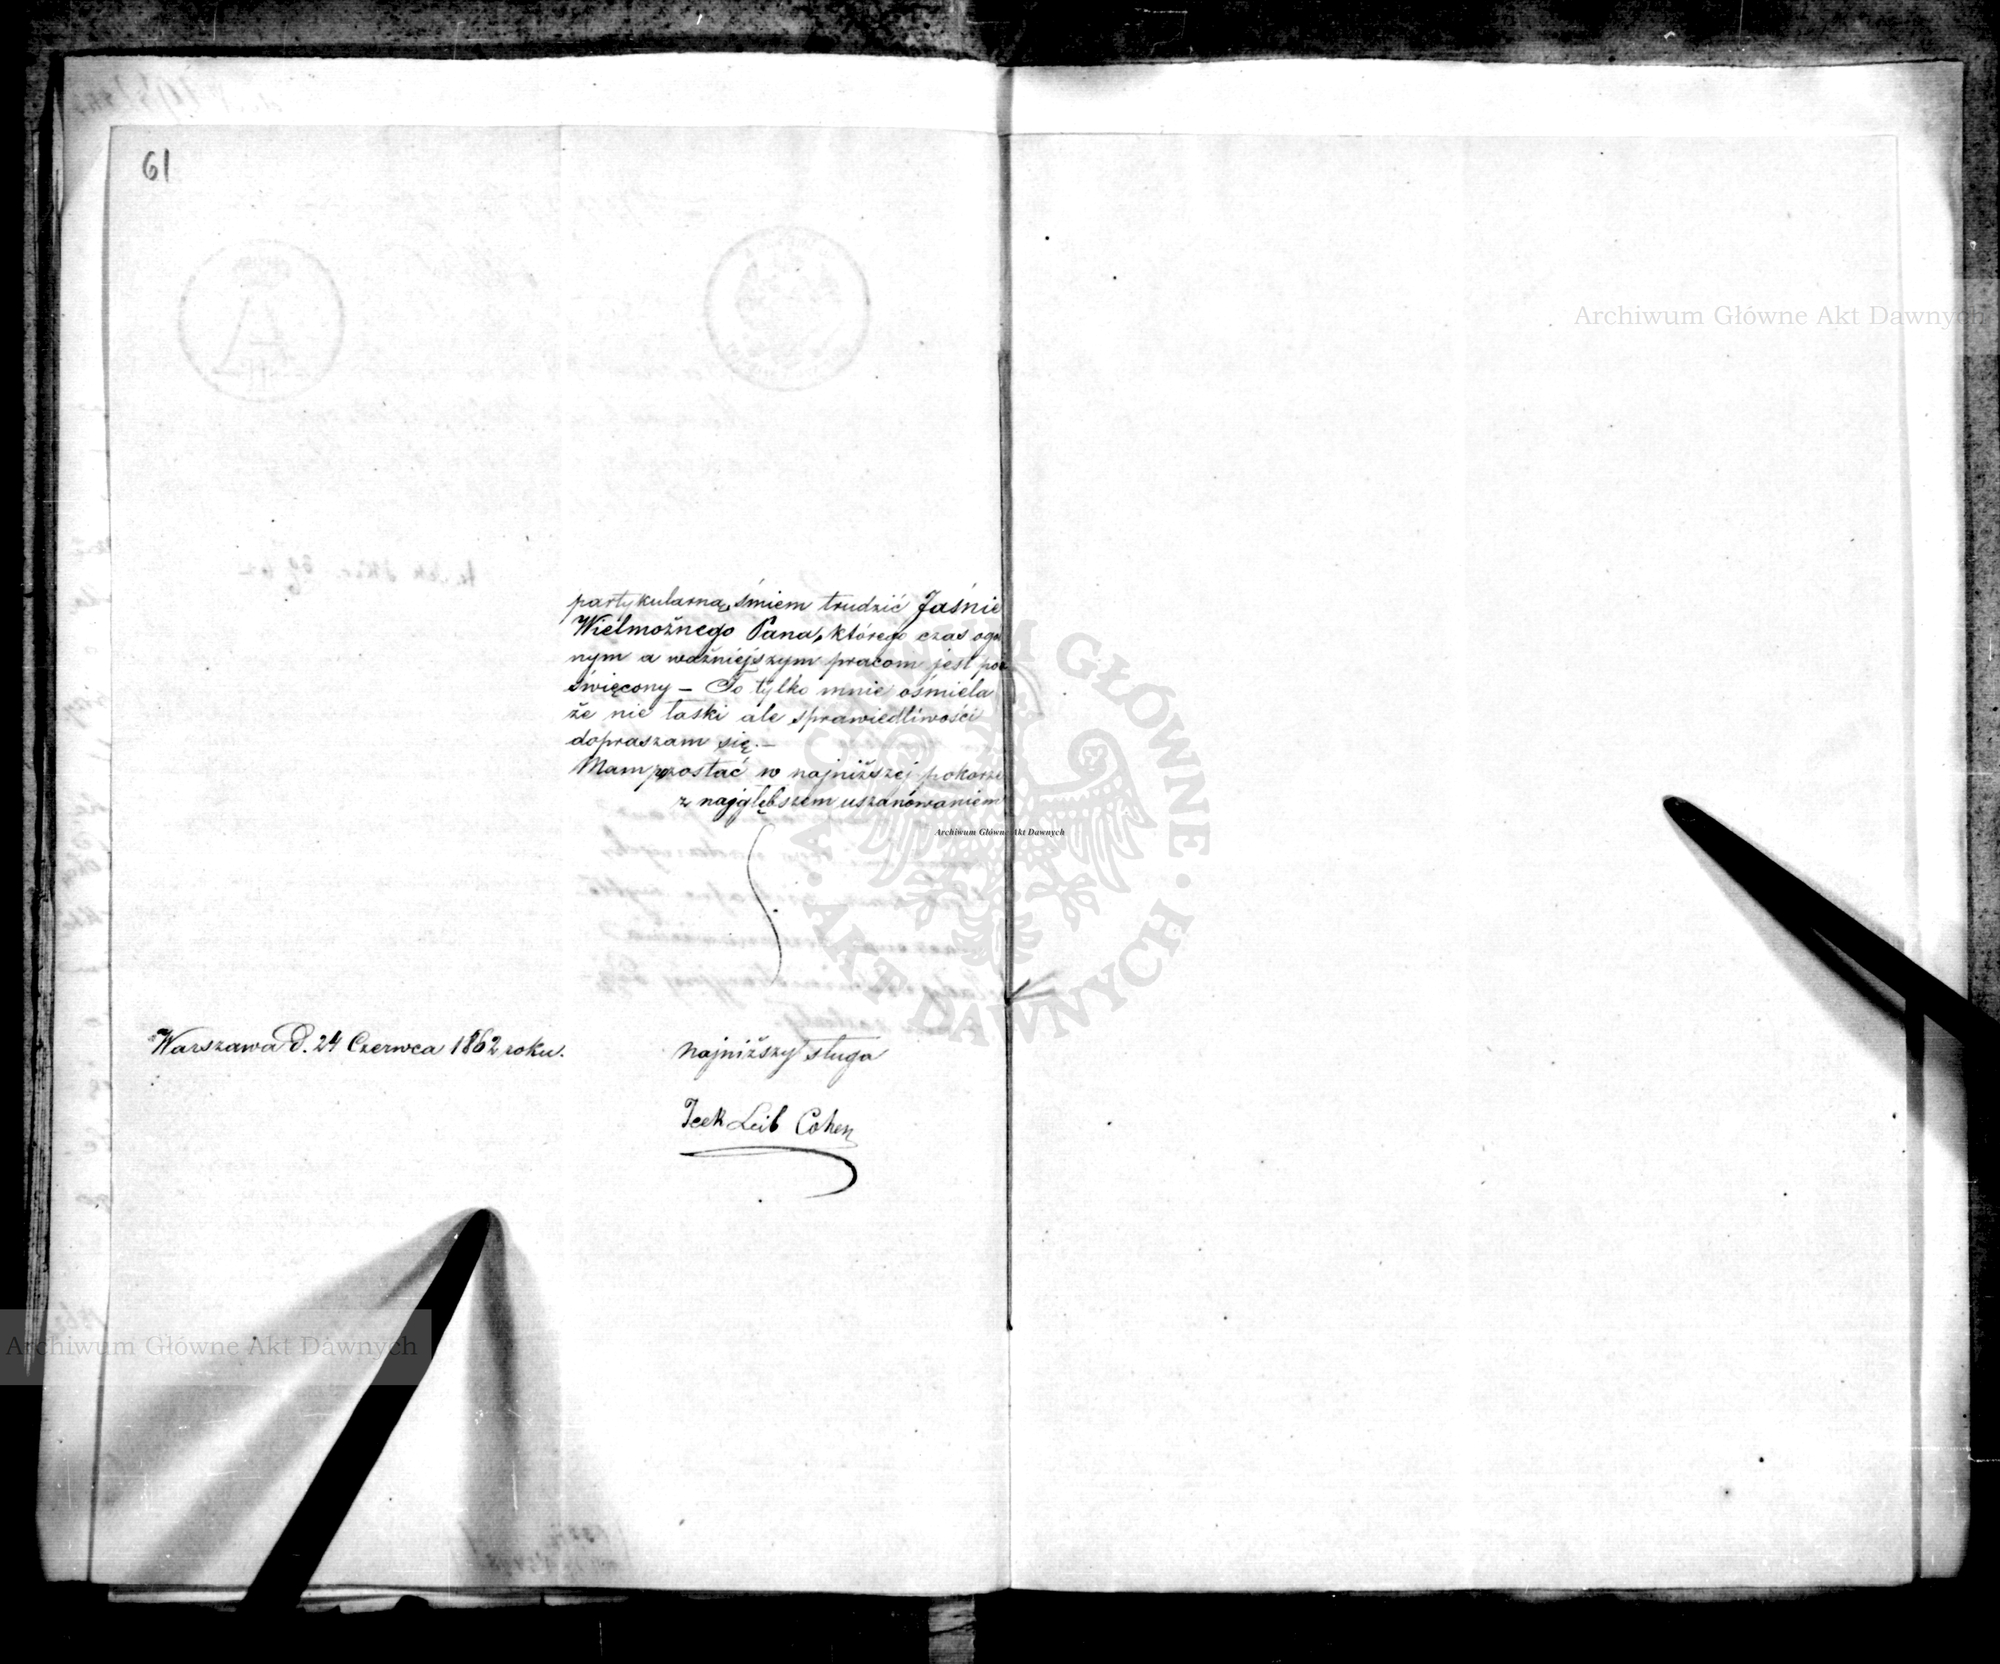 61
partykularną, śmiem trudzić Jaśnie
Wielmożnego Pana, którego czas ogól
nym a ważniejszym pracom jest po
święcony – To tylko mnie ośmiela
że nie łaski ale sprawiedliwości
dopraszam się. –
Mam zostać w najniższej pokorze
z najgłębszem uszanowaniem
Warszawa d. 24 Czerwca 1862 roku.
najniższy sługa
Icek Leib Cohen
Archiwum Główne Akt Dawnych
Archiwum Główne Akt Dawnych
Archiwum Główne Akt Dawnych
ARCHIWUM GŁÓWNE · AKT DAWNYCH ·